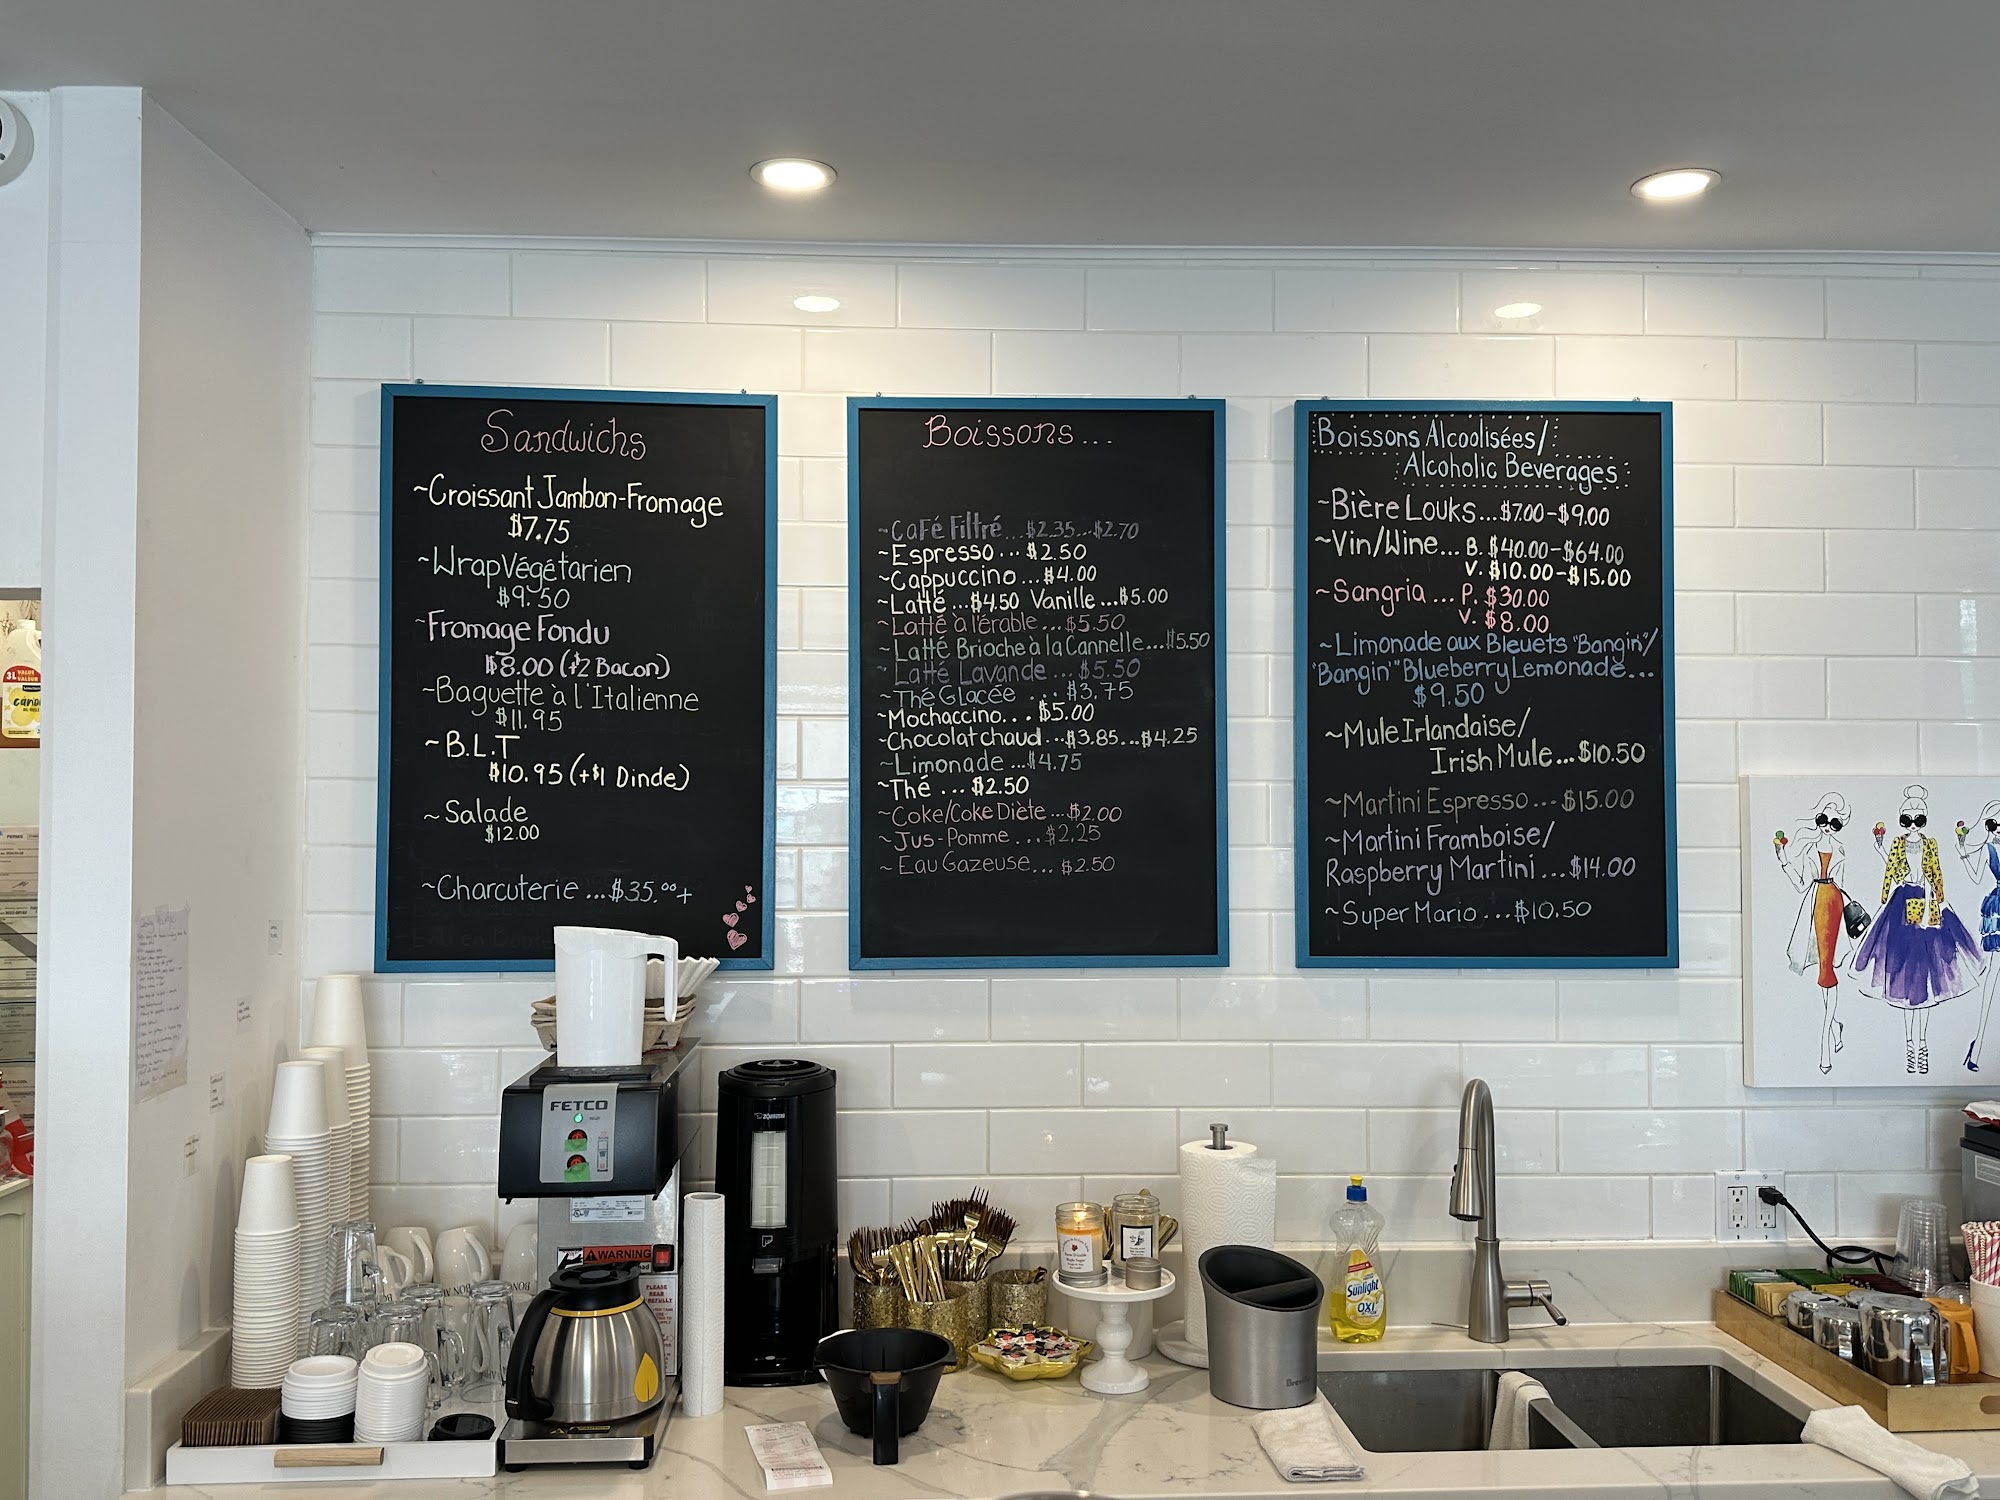 Sandwichs
~Croissant Jambon-Fromage
$7.75
~Wrap Végétarien
$9.50
~Fromage Fondu
$8.00 (+$2 Bacon)
~Baguette à l'Italienne
$11.95
~B.L.T
$10.95 (+$1 Dinde)
~Salade
$12.00
~Charcuterie ...$35.00+
Boissons...
~Café Filtré...$2.35...$2.70
~Espresso...$2.50
~Cappuccino...$4.00
~Latté...$4.50 Vanille...$5.00
~Latté à l'érable...$5.50
~Latté Brioche à la Cannelle...$5.50
~Latté Lavande...$5.50
~Thé Glacée ...$3.75
~Mochaccino...$5.00
~Chocolat chaud...$3.85...$4.25
~Limonade...$4.75
~Thé...$2.50
~Coke/Coke Diète...$2.00
~Jus-Pomme...$2.25
~Eau Gazeuse...$2.50
Boissons Alcoolisées/
Alcoholic Beverages
~Bière Louks...$7.00-$9.00
~Vin/Wine... B. $40.00-$64.00
V. $10.00-$15.00
~Sangria... P. $30.00
V. $8.00
~Limonade aux Bleuets "Bangin'"/
"Bangin'" Blueberry Lemonade...
$9.50
~Mule Irlandaise/
Irish Mule...$10.50
~Martini Espresso...$15.00
~Martini Framboise/
Raspberry Martini...$14.00
~Super Mario...$10.50
3L VALUE VALEUR
FETCO
ZOJIRUSHI
WARNING
PLEASE
READ
Sunlight
OXI
Breville